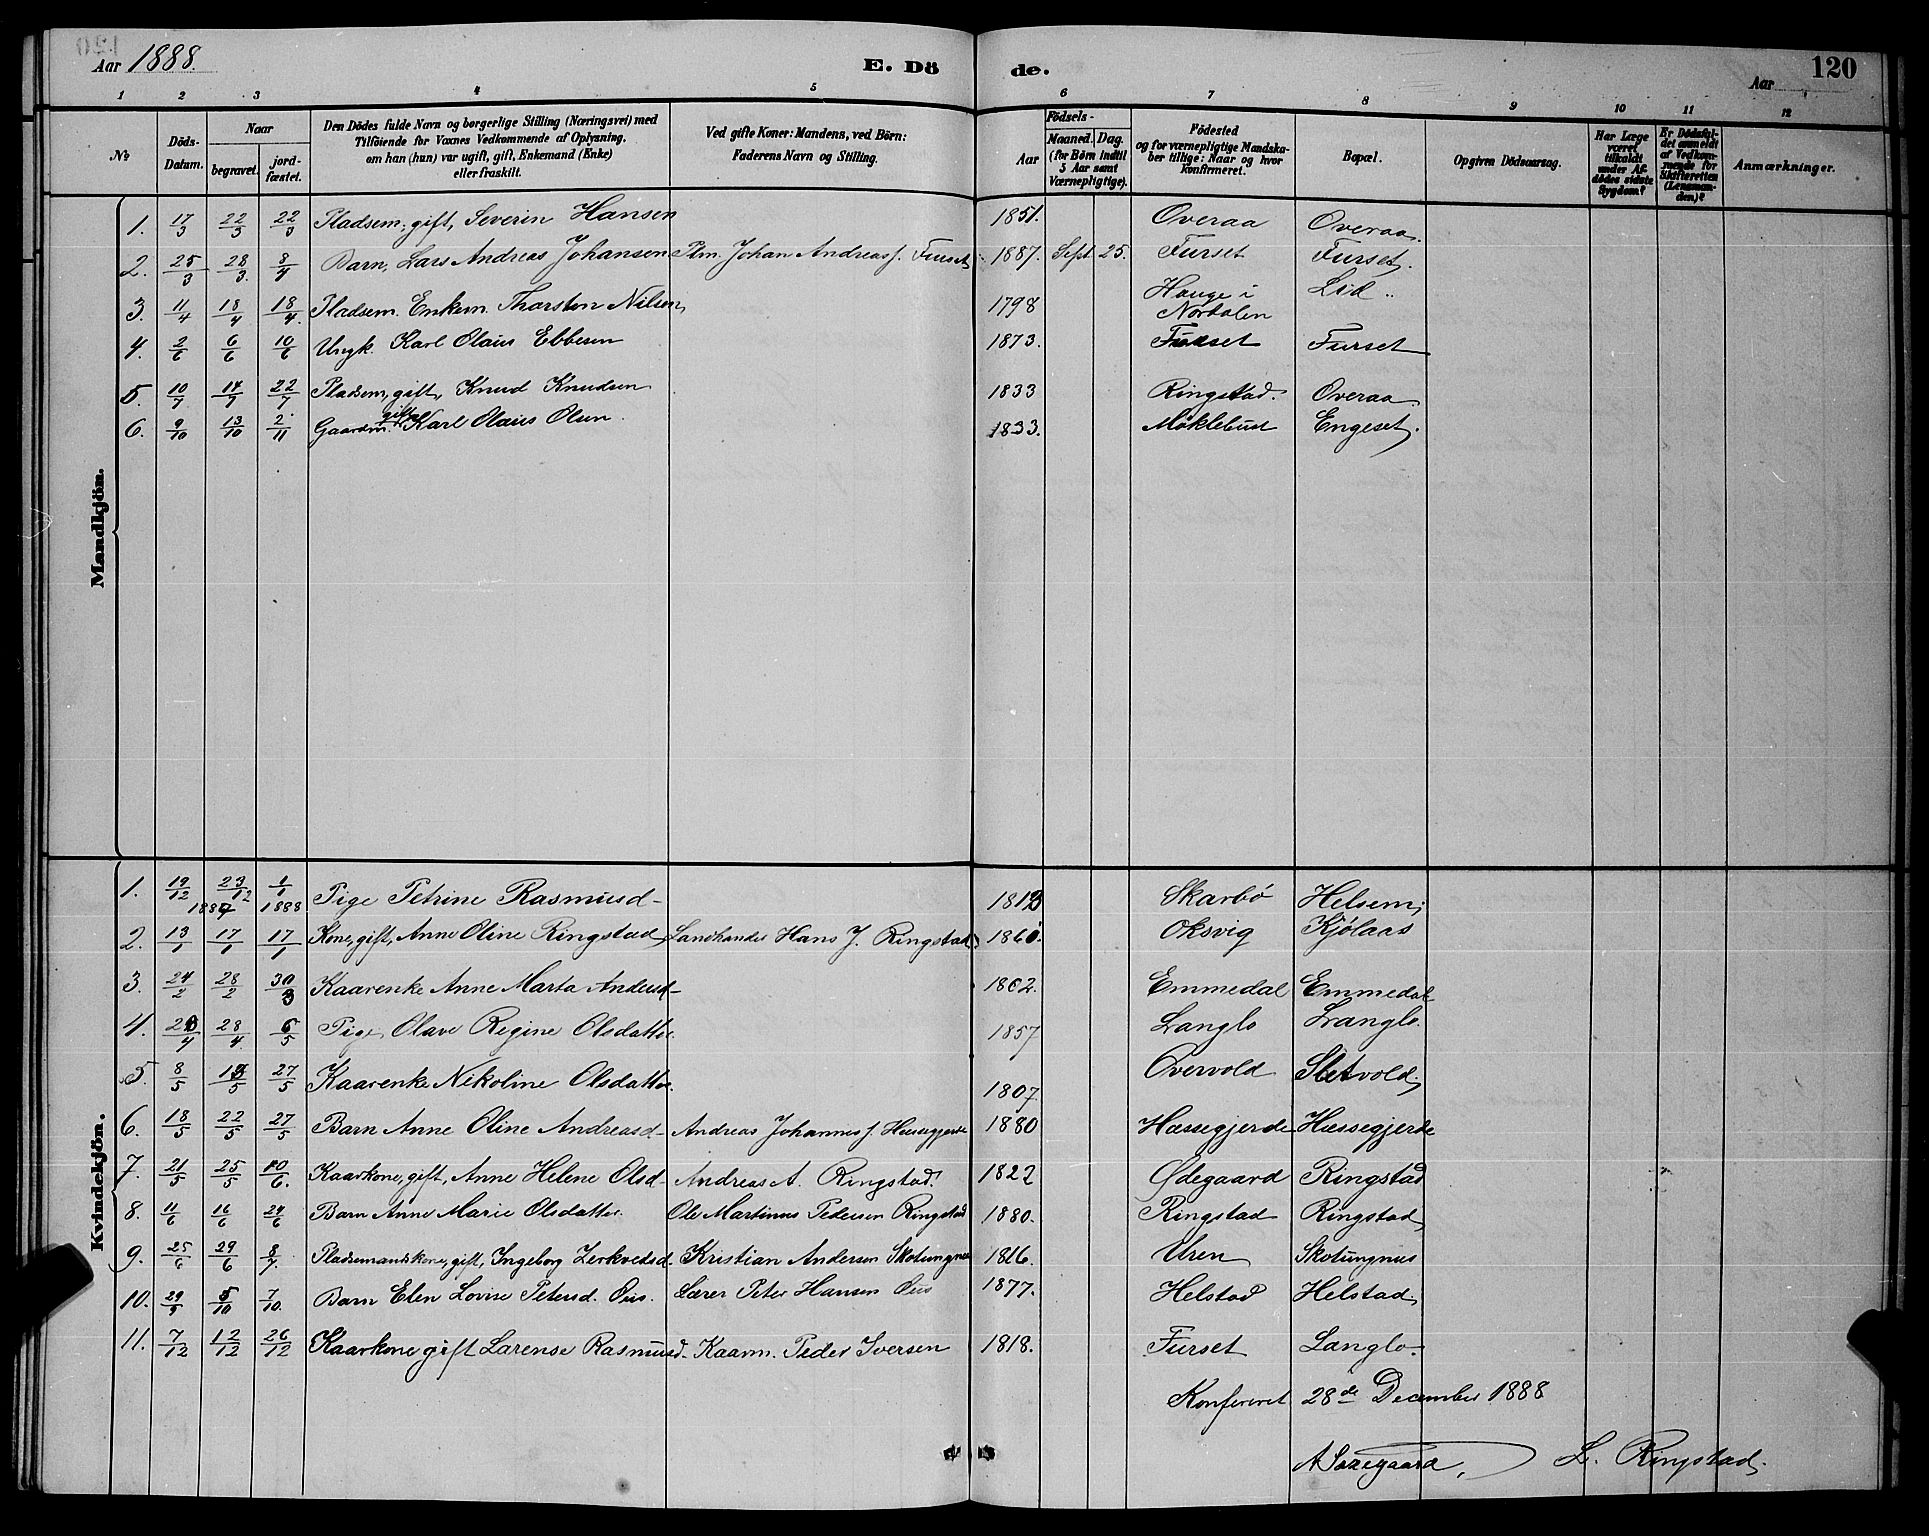 Aar 1888. E. Dö de. Aar 120
1 2 3 4 5 6 7 8 9 10 11 12
No Döds-Datum. Naar begravet. jord-fæstet. Den Dödes fulde Navn og borgerlige Stilling (Næringsvei) med Tilföiende for Voxnes Vedkommende af Oplysning, om han (hun) var ugift, gift, Enkemand (Enke) eller fraskilt. Ved gifte Koner: Mandens, ved Börn: Faderens Navn og Stilling. Födsels- Aar Maaned. Dag. (for Börn indtil 5 Aar samt Værnepligtige). Födested og for værnepligtige Mandska-ber tillige: Naar og hvor konfirmeret. Bopæl. Opgiven Dödsaarsag. Har Læge været tilkaldt under Af-dödes sidste Sygdom? Er Dödsfal-det anmeldt af Vedkom-mende for Skifteretten (Lensman-den)? Anmærkninger.
Mandkjön.
1. 17/3 22/3 22/3 Pladsem, gift, Severin Hansen 1851. Overaa Overaa.
2. 25/3 28/3. 8/4 Barn, Lars Andreas Johansen Plm. Johan Andreas s. Furset 1887. Sept. 25. Furset Furset.
3. 11/4 18/4 18/4. Pladsem. Enkem. Thorsten Nilsen, 1798 Hauge i Nordalen Lid..
4. 2/6 6/6 10/6 Ungk. Karl Olaus Ebbesen 1873. Furset Furset
5. 10/7 14/7 22/7 Pladsem, gift, Knud Knudsen 1833 Ringstad. Overaa.
6. 9/10 13/10 2/11 Gaardm. gift Karl Olaus Olsen. 1833. Möklebust Engeset.
Kvindekjön.
1. 19/12 23/12 1887 1/1 1888 Pige Petrine Rasmusd- 1813 Skarbö Helsem,
2. 13/1 17/1 17/1 Kone, gift, Anne Oline Ringstad Landhandler Hans J. Ringstad. 1860. Oksvig Kjölaas
3. 24/2 28/2 30/3 Kaarenke Anne Marta Andersd- 1802. Emmedal Emmedal
4. 23/4 28/4. 6/5 Pige, Olave Regine Olsdatter. 1857 Langlo Langlo.
5. 8/5 13/5 27/5 Kaarenke Nikoline Olsdatter. 1807. Overvold Sletvold,
6. 18/5 22/5 27/5 Barn Anne Oline Andreasd- Andreas Johannes s. Hæssegjerde 1880 Hæssegjerde Hæssegjerde
7. 21/5 25/5 10/6. Kaarkone, gift, Anne Helene Olsd- Andreas A. Ringstad. 1822 Ødegaard Ringstad
8. 11/6 16/6 24/6 Barn Anne Marie Olsdatter. Ole Martinus Pedersen Ringstad 1880. Ringstad Ringstad,
9. 25/6 29/6 8/7. Pladsemandskone, gift, Ingeborg Zerkvedsd. Kristian Andersen Skotungnes 1816. Uren Skotungnes
10. 29/9 5/10 7/10. Barn Elen Lovise Petersd. Øus. Lærer Peter Hansen Øus 1877. Helstad Helstad,
11. 7/12 12/12 26/12 Kaarkone gift Larense Rasmusd. Kaarm. Peder Iversen 1818. Furset Langlo.
Konfereret 28de December 1888
L. Ringstad.